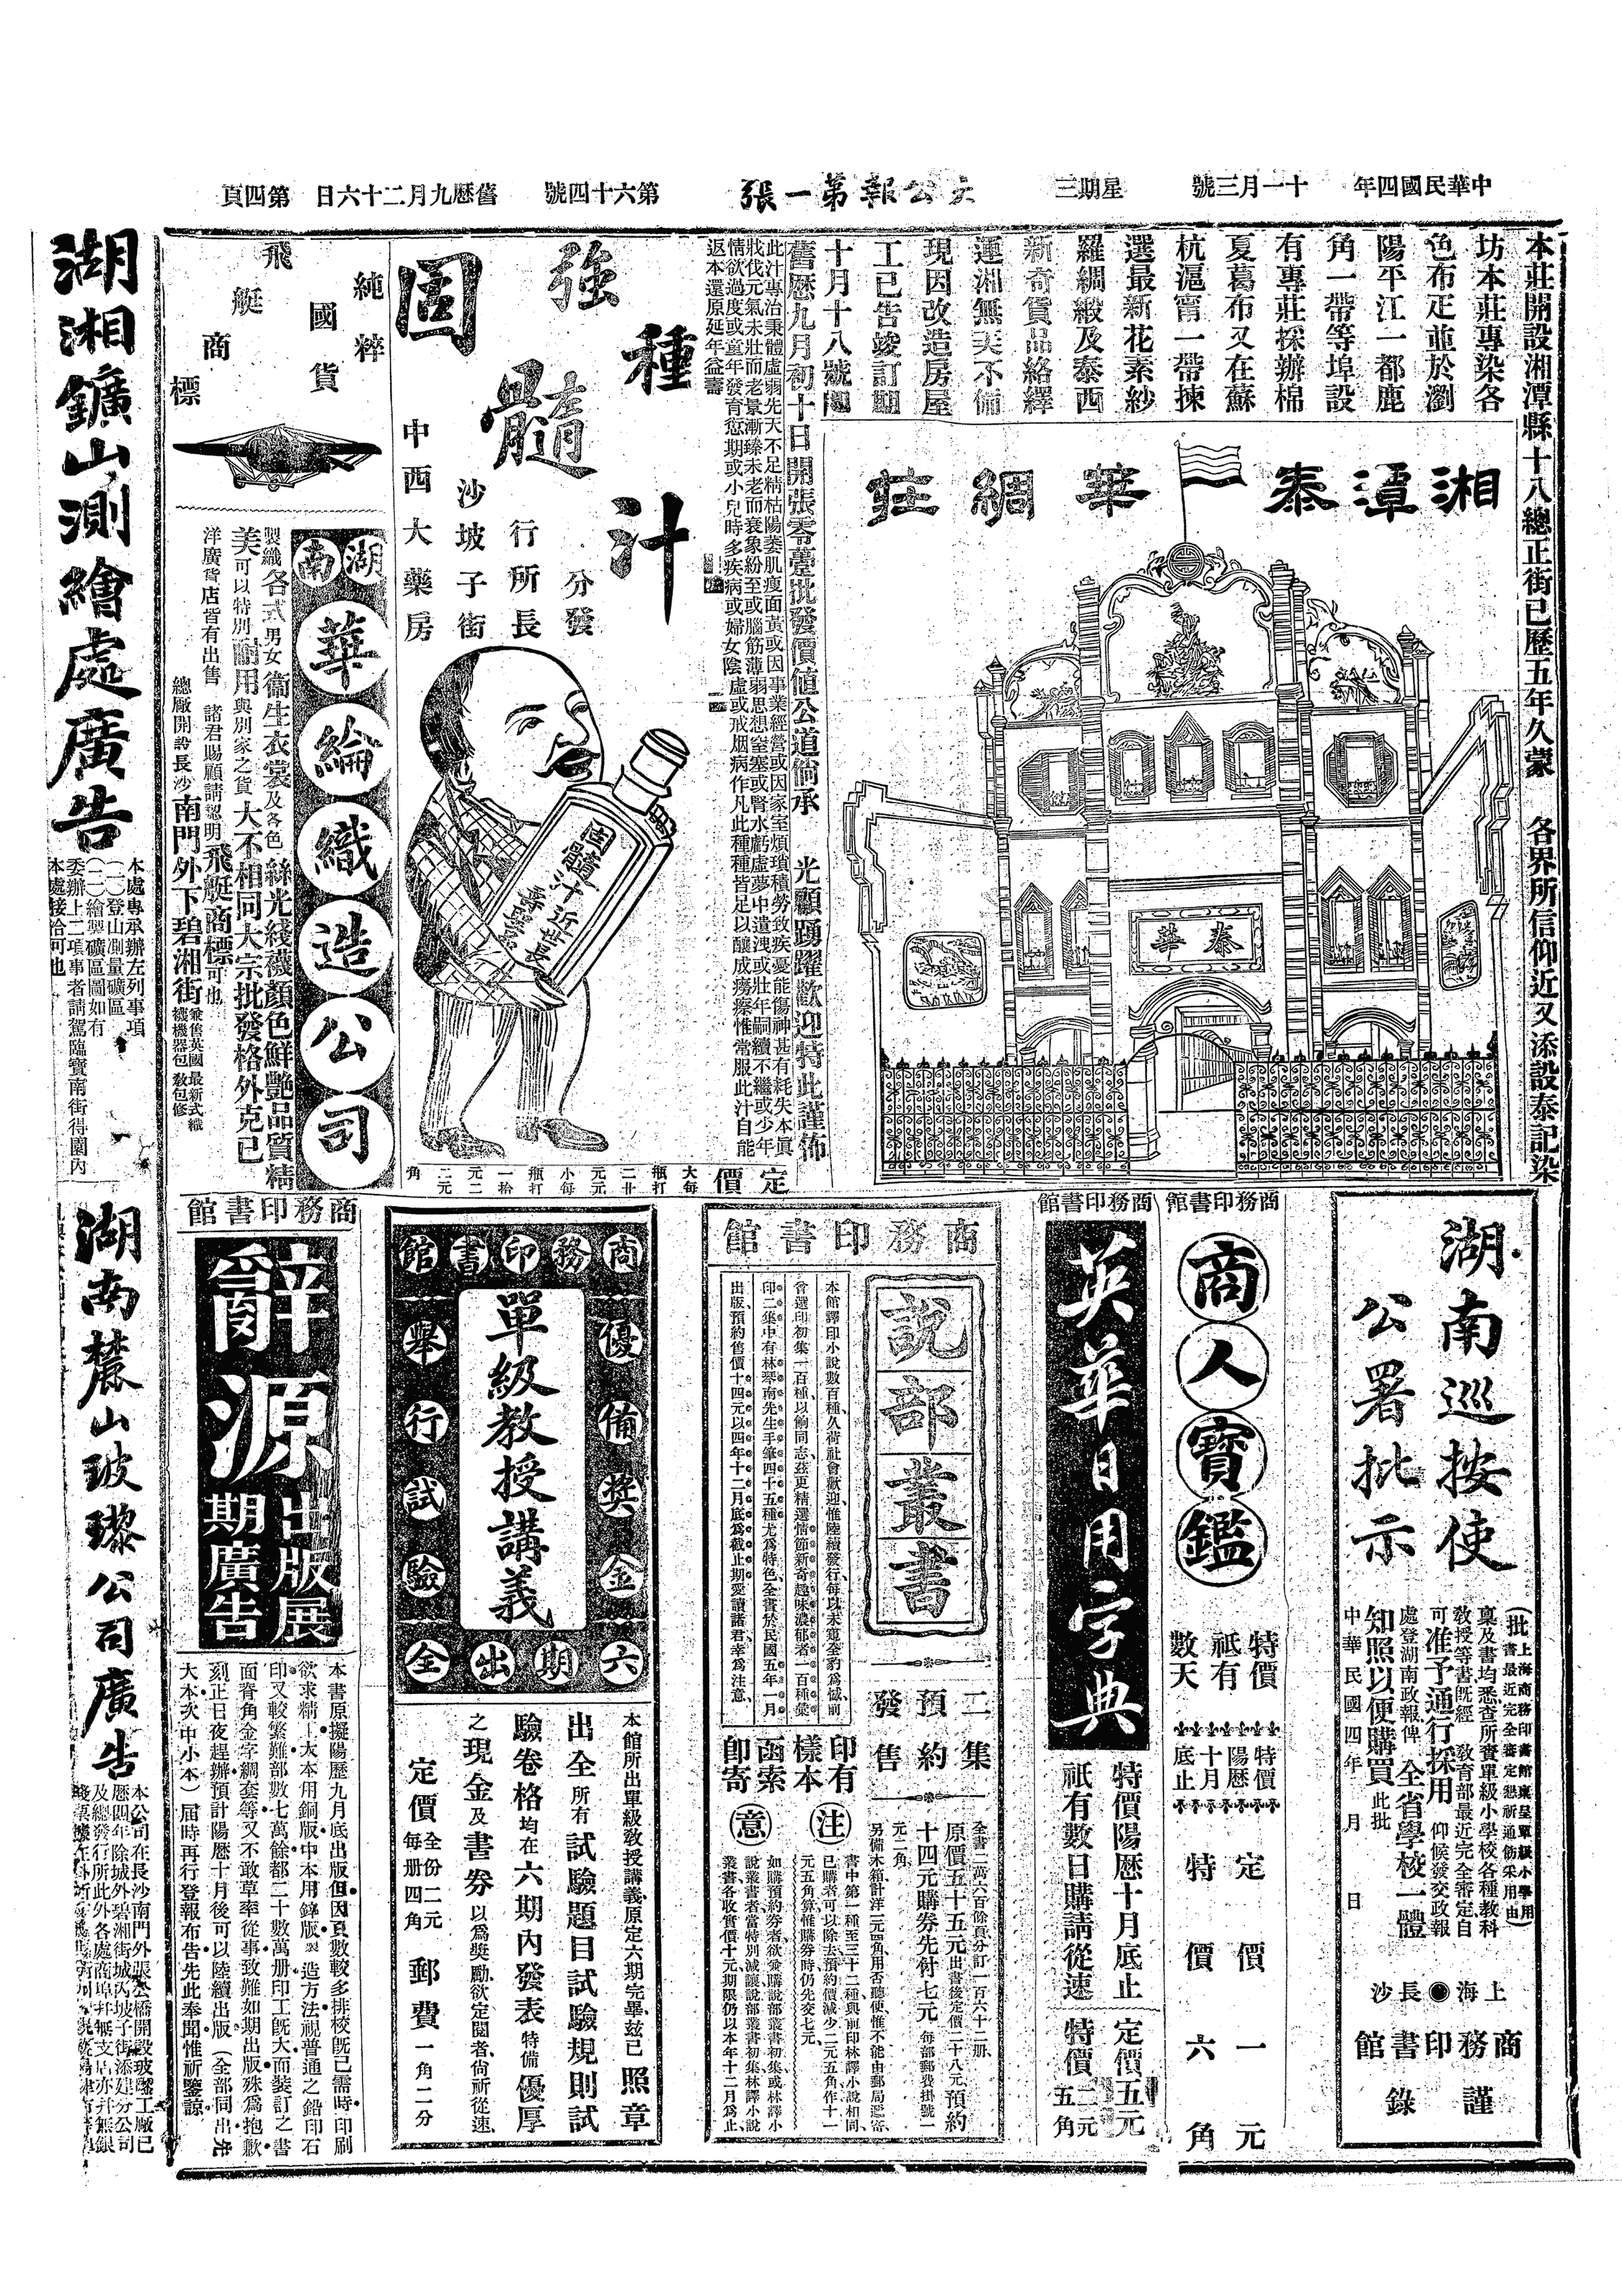 中華民國四年
十一月三號
星期三
大公報第一張
第六十四號
舊曆九月二十六日
第四頁
本莊開設湘潭縣十八總正街已歷五年久蒙 各界所信仰近又添設泰記染
坊本莊專染各
色布疋並於瀏
陽平江一都鹿
角一帶等埠設
有專莊採辦棉
夏葛布又在蘇
杭滬甯一帶揀
選最新花素紗
羅綢緞及泰西
新奇貨品絡繹
運湘無美不備
現因改造房屋
工已告竣訂期
十月十八號即
舊曆九月初十日開張零躉批發價值公道倘承 光顧踴躍歡迎特此謹佈
湘潭泰華綢莊
泰華
強種
固髓汁
分發
行所長
沙坡子街
中西大藥房
此汁專治秉體虛弱先天不足精枯陽萎肌瘦面黃或因事業經營或因家室煩瑣積勞致疾憂能傷神甚有耗失本眞
戕伐元氣未壯而老景漸臻未老而衰象紛至或腦筋薄弱思想窒塞或腎水虧虛夢中遺洩或壯年嗣續不繼或少年
情欲過度或童年發育愆期或小兒時多疾病或婦女陰虛或戒烟病作凡此種種皆足以釀成癆瘵惟常服此汁自能
返本還原延年益壽
固髓汁近世長壽聖品
定價
大瓶每打廿二元
小瓶每打十一元
每
二元
二角
純粹
國貨
飛艇商標
湖南
華綸織造公司
製織各式男女衛生衣裳及各色絲光綫襪顏色鮮艷品質精
美可以特別耐用與別家之貨大不相同大宗批發格外克己
洋廣貨店皆有出售 諸君賜顧請認明飛艇商標可也
總廠開設長沙南門外下碧湘街
乘售英國最新式織
襪機器包教包修
湖湘鑛山測繪處廣告
本處專承辦左列事項
(一)登山測量礦區
(二)繪製礦區圖如有
委辦上二項事者請駕臨寶南街得園內
本處接洽可也
湖南麓山玻璨公司廣告
本公司在長沙南門外張公橋開設玻璨工廠已
歷四年除城外碧湘街城內坡子街添建分公司
及總發行所此外各處商埠并無支店亦并無銀
湖南巡按使
公署批示
(批上海商務印書館稟呈單級小學用
書最近完全審定懇祈通飭采用由)
稟及書均悉查所賫單級小學校各種教科
敎授等書旣經 敎育部最近完全審定自
可准予通行採用 仰候發交政報
處登湖南政報俾 全省學校一體
知照以便購買此批
中華民國四年 月 日
上海●長沙
商務印書館
謹錄
商務印書館
商人寶鑑
特價
祗有
數天
特價
陽歷
十月
底止
定價一元
特價六角
商務印書館
英華日用字典
特價陽歷十月底止
祇有數日購請從速
定價五元
特價二元五角
商務印書館
說部叢書
二集
預約
發售
印有
樣本
函索
即寄
本館譯印小說數百種久荷社會歡迎惟陸續發行每以未窺全豹為憾前
曾選印初集一百種以餉同志茲更精選情節新奇趣味濃郁者一百種彙
印二集中有林琴南先生手筆四十五種尤為特色全書於民國五年一月
出版預約售價十四元以四年十二月底為截止期愛讀諸君幸為注意
全書二萬六百餘頁分訂一百六十二册
原價五十五元出書後定價二十八元預約
十四元購券先付七元每部郵費掛號一
元二角
另備木箱計洋二元四角用否聽便惟不能由郵局遞寄
注意
書中第一種至三十二種與前印林譯小說相同
已購者可以除去預約價減少二元五角作十一
元五角算惟購券時仍先交七元
如購預約券者欲兼購說部叢書初集或林譯小
說叢書者當特別減讓說部叢書初集林譯小說
叢書各收實價十元期限仍以本年十二月為止
商務印書館
優備獎金
舉行試驗
單級教授講義
六期出全
本館所出單級敎授講義原定六期完畢茲已照章
出全所有試驗題目試驗規則試
驗卷格均在六期內發表特備優厚
之現金及書券以為獎勵欲定閱者尙祈從速
定價
全份二元
每册四角
郵費一角二分
商務印書館
辭源
出版展
期廣告
本書原擬陽歷九月底出版但因頁數較多排校旣已需時印刷
欲求精大本用銅版中本用鋅版製造方法視普通之鉛印石
印又較繁難部數七萬餘都二十數萬册印工旣大而裝訂之書
面脊角金字綢套等又不敢草率從事致難如期出版殊為抱歉
刻正日夜趕辦預計陽歷十月後可以陸續出版(全部同出先
大本次中小本)屆時再行登報布告先此奉聞惟祈鑒諒